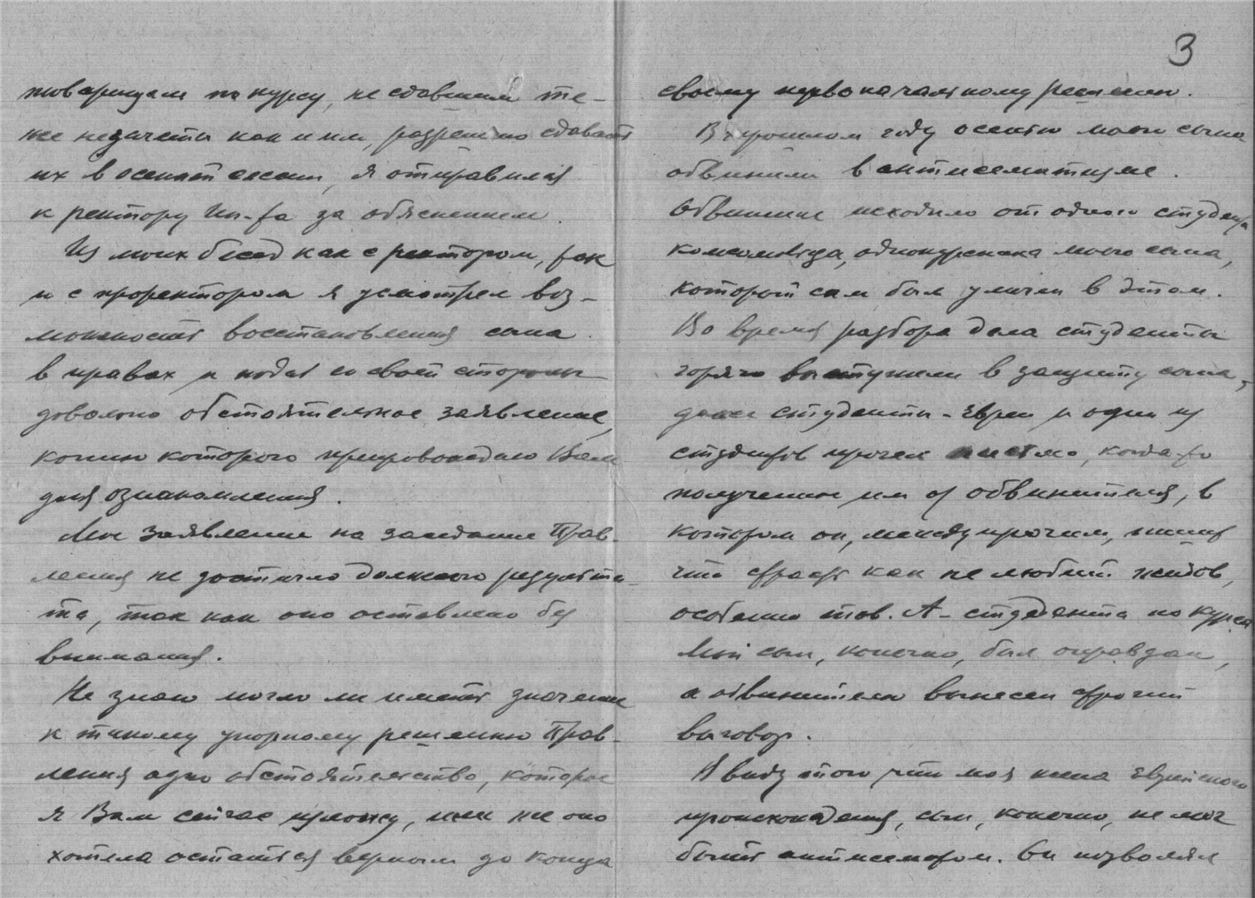 товарищам по курсу, не сдавшим те-
же незачеты как и им, разрешено сдавать
их в осенней сессии, я отправился
к ректору Ин-та за объяснением.
Из моих бесед как с ректором, так
и с проректором я усмотрел воз-
можность восстановления сына
в правах и подал со своей стороны
довольно обстоятельное заявление,
копию которого препровождаю Вам
для ознакомления.
Мое заявление на заседание Прав-
ления не достигло должного результа-
та, так как оно оставлено без
внимания.
Не знаю могло ли иметь значение
к такому упорному решению Прав-
ления одно обстоятельство, которое
я Вам сейчас изложу, или же оно
хотело остаться верным до конца
3
своему первоначальному решению.
В прошлом году осенью моего сына
обвинили в антисемитизме.
Обвинение исходило от одного студента
комсомольца, однокурсника моего сына,
который сам был уличен в этом.
Во время разбора дела студенты
горячо выступили в защиту сына,
даже студенты-евреи и один из
студентов прочел письмо, когда-то
полученное им от обвинителя, в
котором он, между прочим, пишет
что страсть как не любит жидов,
особенно тов. А - студента по курсу
Мой сын, конечно, был оправдан,
а обвинителю вынесен строгий
выговор.
В виду того что моя жена Еврейского
происхождения, сын, конечно, не мог
быть антисемитом. Он позволял